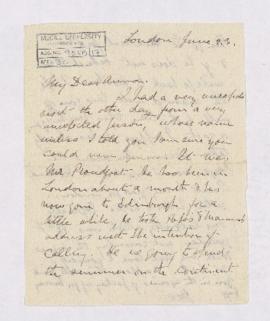 McGILL UNIVERSITY
ACC. NO.
London June 23.
My Dear Amma.
I had a very unexpected
visit the other day from a very
unexpected person, whose name
unless I told you I am sure you
could never guess. It was
Mr. Proudfoot. He has been in
London about a month & has
now gone to Edinburgh for a
little while, he took Papa's & Mamma's
address with the intention of
calling. He is going to spend
the summer on the Continent